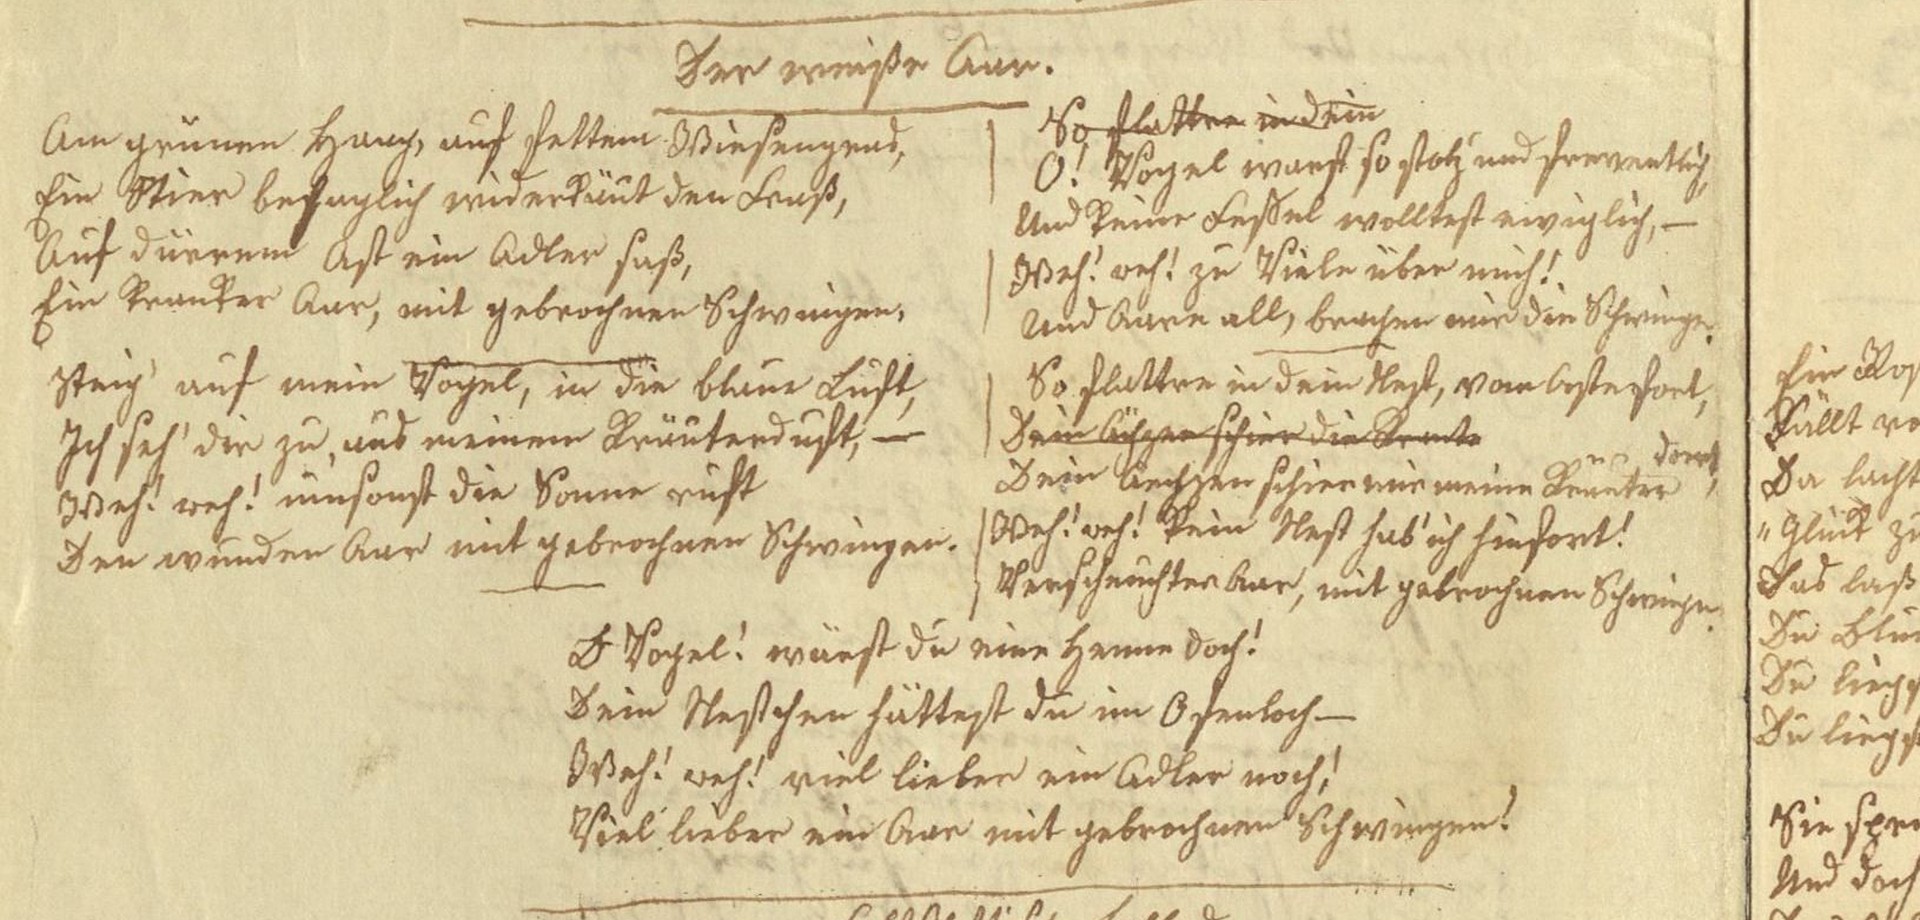 Der weiße Aar.
Am grünen Hang, auf fettem Wiesengras,
Ein Stier behaglich widerkäut den Fraß,
Auf dürrem Ast ein Adler saß,
Ein kranker Aar, mit gebrochnen Schwingen.
Steig' auf mein Vogel, in die blaue Luft,
Ich seh' dir zu, aus meinem Kräuterduft, —
Weh! weh! umsonst die Sonne ruft
Den wunden Aar mit gebrochnen Schwingen.
So flattre in dein
O! Vogel warst so stolz und freventlich,
Und keine Fessel wolltest ewiglich, —
Weh! weh! zu Viele über mich!
Und Aare all, brachen mir die Schwingen.
So flattre in dein Nest, vom Aste fort,
Dein Ächzen schier die
Dein Aechzen schier mir meine Kräuter dorrt,
Weh! weh! kein Nest hab' ich hinfort!
Verscheuchter Aar, mit gebrochnen Schwingen.
O Vogel! wärst du eine Henne doch!
Dein Nestchen hättest du im Ofenloch —
Weh! weh! viel lieber ein Adler noch,
Viel lieber ein Aar mit gebrochnen Schwingen!
Fällt
Da lacht
"Glück zu
Das laß
Du
Du liegst
Du liegst
Sie
Und doch